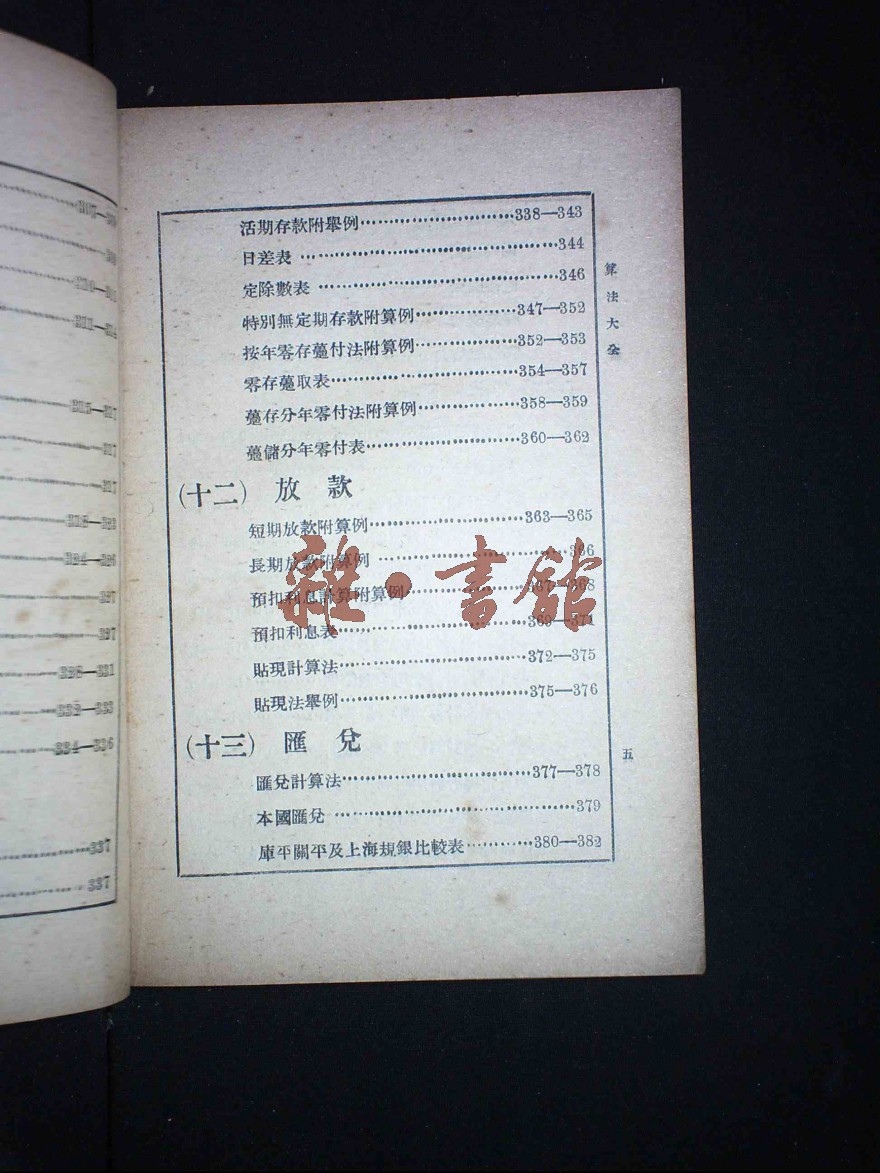 活期存款附舉例…………………338—343
日差表…………………344
定除數表…………………346
特別無定期存款附算例…………347—352
按年零存躉付法附算例…………352—353
零存躉取表…………………354—357
躉存分年零付法附算例…………358—359
躉儲分年零付表…………………360—362
(十二) 放款
短期放款附算例…………………363—365
長期放款附算例…………………366
預扣利息計算附算例…………367—368
預扣利息表…………………369—371
貼現計算法…………………372—375
貼現法舉例…………………375—376
(十三) 匯兌
匯兌計算法…………………377—378
本國匯兌…………………379
庫平關平及上海規銀比較表…………380—382
算法大全
五
雜·書館
334—336
337
337